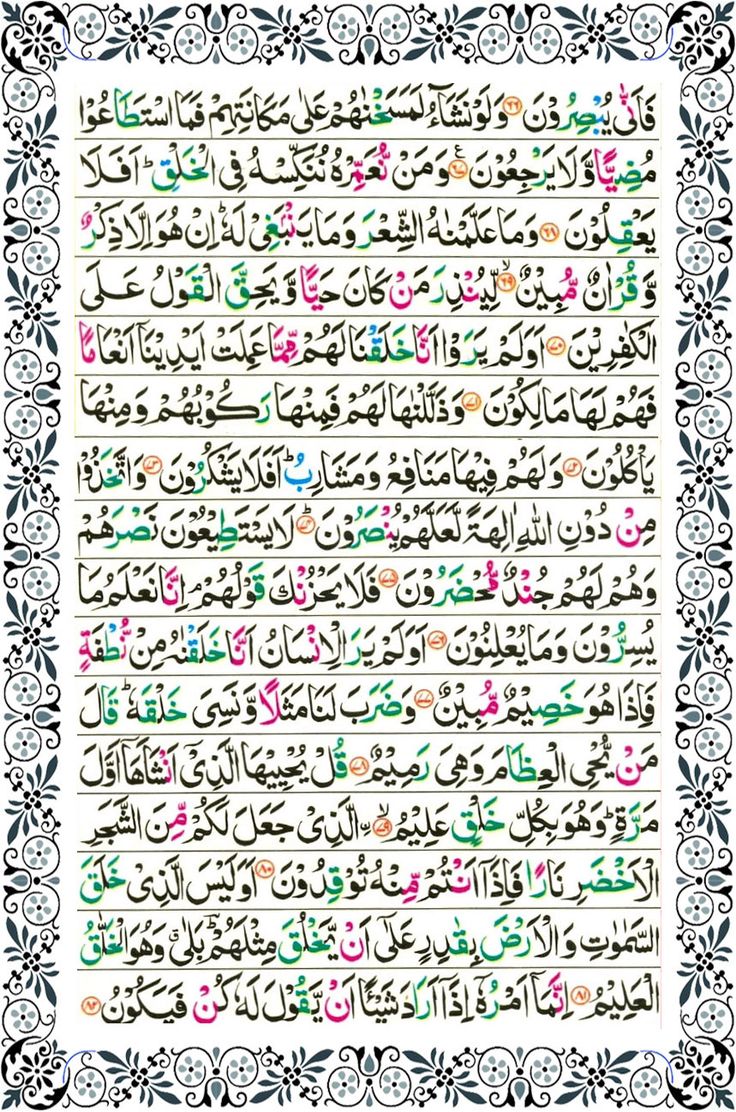 فَاَنّٰى يُبْصِرُوْنَ ﴿۶۶﴾ وَلَوْ نَشَآءُ لَمَسَخْنٰهُمْ عَلٰى مَكَانَتِهِمْ فَمَا اسْتَطَاعُوْا
مُضِيًّا وَّلَا يَرْجِعُوْنَ ﴿۶۷﴾ ع وَمَنْ نُّعَمِّرْهُ نُنَكِّسْهُ فِى الْخَلْقِ ؕ اَفَلَا
يَعْقِلُوْنَ ﴿۶۸﴾ وَمَا عَلَّمْنٰهُ الشِّعْرَ وَمَا يَنْۢبَغِىْ لَهٗ ؕ اِنْ هُوَ اِلَّا ذِكْرٌ
وَّقُرْاٰنٌ مُّبِيْنٌ ﴿۶۹﴾ ۙ لِّيُنْذِرَ مَنْ كَانَ حَيًّا وَّيَحِقَّ الْقَوْلُ عَلَى
الْكٰفِرِيْنَ ﴿۷۰﴾ اَوَلَمْ يَرَوْا اَنَّا خَلَقْنَا لَهُمْ مِّمَّا عَمِلَتْ اَيْدِيْنَاۤ اَنْعَامًا
فَهُمْ لَهَا مَالِكُوْنَ ﴿۷۱﴾ وَذَلَّلْنٰهَا لَهُمْ فَمِنْهَا رَكُوْبُهُمْ وَمِنْهَا
يَاْكُلُوْنَ ﴿۷۲﴾ وَلَهُمْ فِيْهَا مَنَافِعُ وَمَشَارِبُ ؕ اَفَلَا يَشْكُرُوْنَ ﴿۷۳﴾ وَاتَّخَذُوْا
مِنْ دُوْنِ اللّٰهِ اٰلِهَةً لَّعَلَّهُمْ يُنْصَرُوْنَ ﴿۷۴﴾ ؕ لَا يَسْتَطِيْعُوْنَ نَصْرَهُمْ
وَهُمْ لَهُمْ جُنْدٌ مُّحْضَرُوْنَ ﴿۷۵﴾ فَلَا يَحْزُنْكَ قَوْلُهُمْ ۘ اِنَّا نَعْلَمُ مَا
يُسِرُّوْنَ وَمَا يُعْلِنُوْنَ ﴿۷۶﴾ اَوَلَمْ يَرَ الْاِنْسَانُ اَنَّا خَلَقْنٰهُ مِنْ نُّطْفَةٍ
فَاِذَا هُوَ خَصِيْمٌ مُّبِيْنٌ ﴿۷۷﴾ وَضَرَبَ لَنَا مَثَلًا وَّنَسِىَ خَلْقَهٗ ؕ قَالَ
مَنْ يُّحْىِ الْعِظَامَ وَهِىَ رَمِيْمٌ ﴿۷۸﴾ قُلْ يُحْيِيْهَا الَّذِىْۤ اَنْشَاَهَاۤ اَوَّلَ
مَرَّةٍ ؕ وَهُوَ بِكُلِّ خَلْقٍ عَلِيْمُ ﴿۷۹﴾ ۙ ۨالَّذِىْ جَعَلَ لَكُمْ مِّنَ الشَّجَرِ
الْاَخْضَرِ نَارًا فَاِذَاۤ اَنْتُمْ مِّنْهُ تُوْقِدُوْنَ ﴿۸۰﴾ اَوَلَيْسَ الَّذِىْ خَلَقَ
السَّمٰوٰتِ وَالْاَرْضَ بِقٰدِرٍ عَلٰٓى اَنْ يَّخْلُقَ مِثْلَهُمْ ؕ بَلٰى ۗ وَهُوَ الْخَلّٰقُ
الْعَلِيْمُ ﴿۸۱﴾ اِنَّمَاۤ اَمْرُهٗۤ اِذَاۤ اَرَادَ شَيْــًٔا اَنْ يَّقُوْلَ لَهٗ كُنْ فَيَكُوْنُ ﴿۸۲﴾